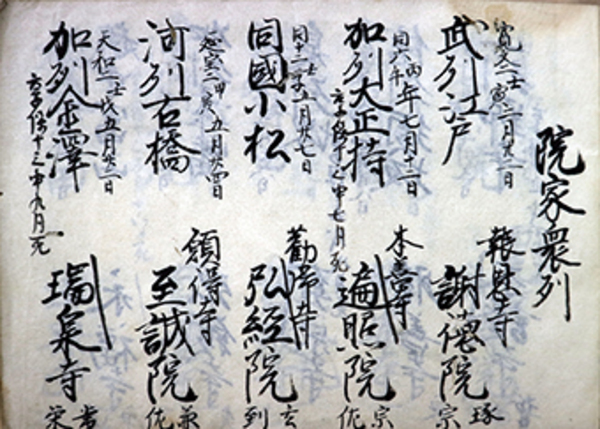 院家衆列
寛文二壬寅二月廿二日
武列江戸
報恩寺
謝徳院
琢宗
同六丙午年七月十二日
加列大正持
享保十三申七月死
本善寺
遍照院
宗佐
五月廿七日
同國小松
弘經院
玄到
延宝二甲寅五月廿四日
河列古橋
願得寺
至誠院
兼佐
天和二壬戌五月廿二日
加列金澤
享保十三申九月死
瑞泉寺